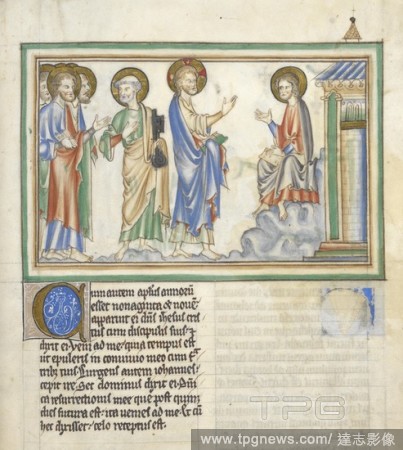 Cum autem aplus annorū
esset nonaginta & nouē
apparuit ei dn̄s ihesus cris
tus cum discipulis suis &
dixit ei veni ad me quia tempus est
ut epuleris in conuiuio meo cum f̄
tribꝫ tuis. Surgens autem iohannes
cepit ire. Set dominus dixit ei. Dn̄i
ca resurrectionis mee que post quinqꝫ
dies futura est. ita uenies ad me. Et cū
hec dixisset celo receptus est.
TPG
www.tpgnews.com / 達志影像